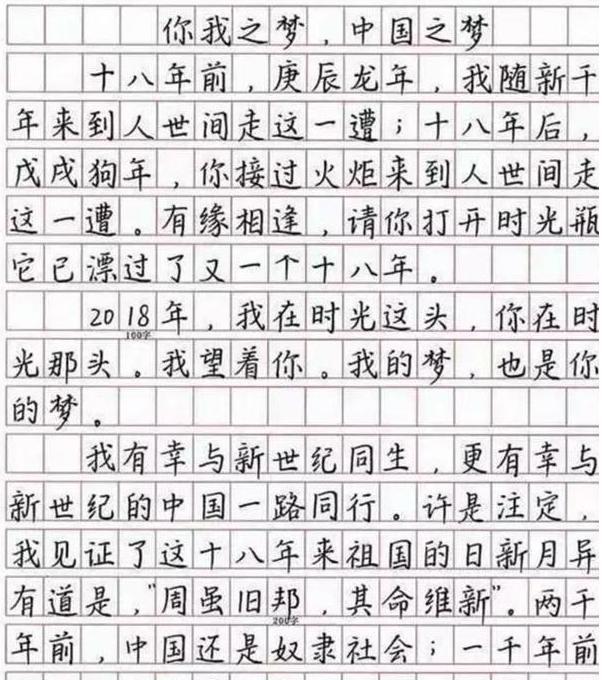 你我之梦，中国之梦
十八年前，庚辰龙年，我随新千
年来到人世间走这一遭；十八年后，
戊戌狗年，你接过火炬来到人世间走
这一遭。有缘相逢，请你打开时光瓶
它已漂过了又一个十八年。
2018年，我在时光这头，你在时
100字
光那头。我望着你。我的梦，也是你
的梦。
我有幸与新世纪同生，更有幸与
新世纪的中国一路同行。许是注定，
我见证了这十八年来祖国的日新月异
有道是，“周虽旧邦，其命维新”。两千
200字
年前，中国还是奴隶社会；一千年前